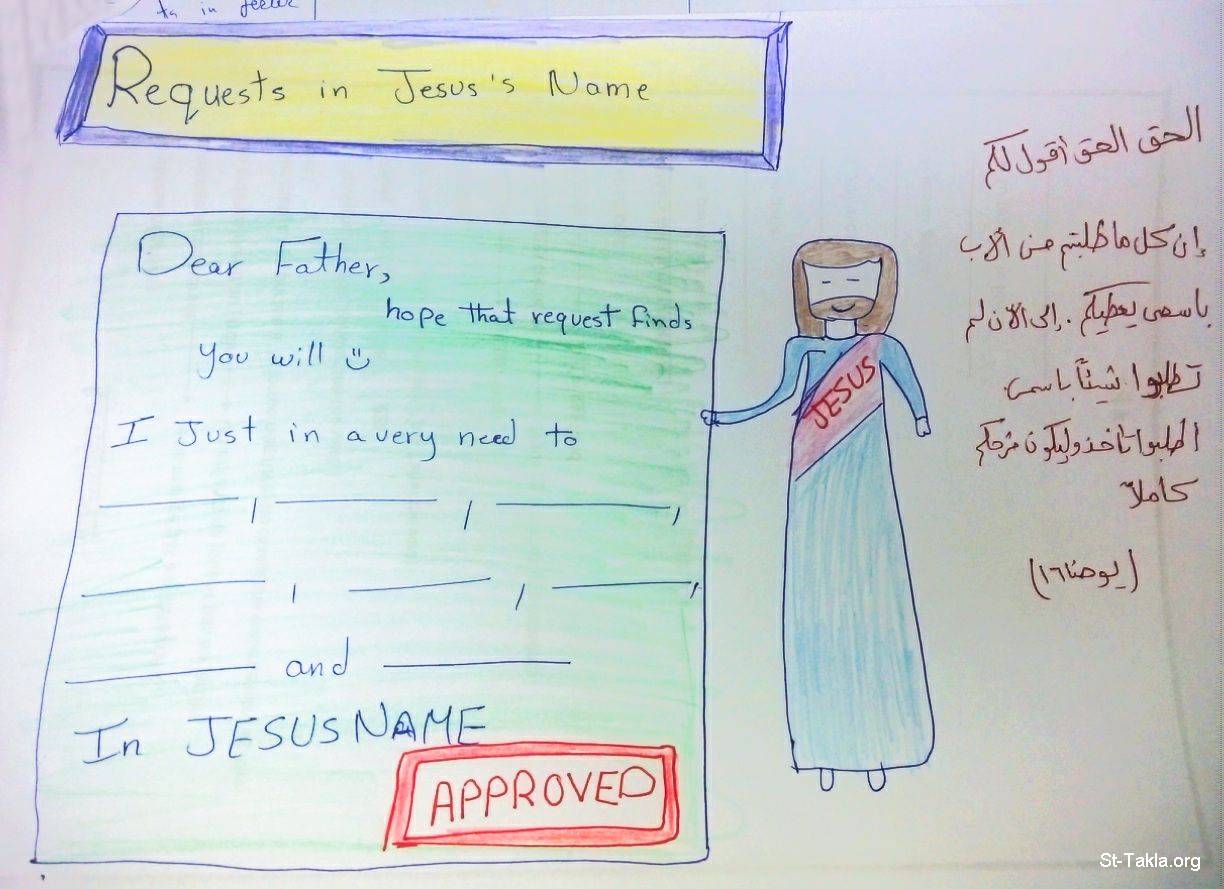 ta in feeler
Requests in Jesus's Name
Dear Father,
hope that request finds
you will
I Just in a very need to
and
In JESUS NAME
APPROVED
JESUS
الحق الحق أقول لكم
إن كل ما طلبتم من الآب
باسمى يعطيكم . إلى الآن لم
تطلبوا شيئاً باسمى
اطلبوا تأخذوا ليكون فرحكم
كاملاً
(يوحنا ١٦)
St-Takla.org